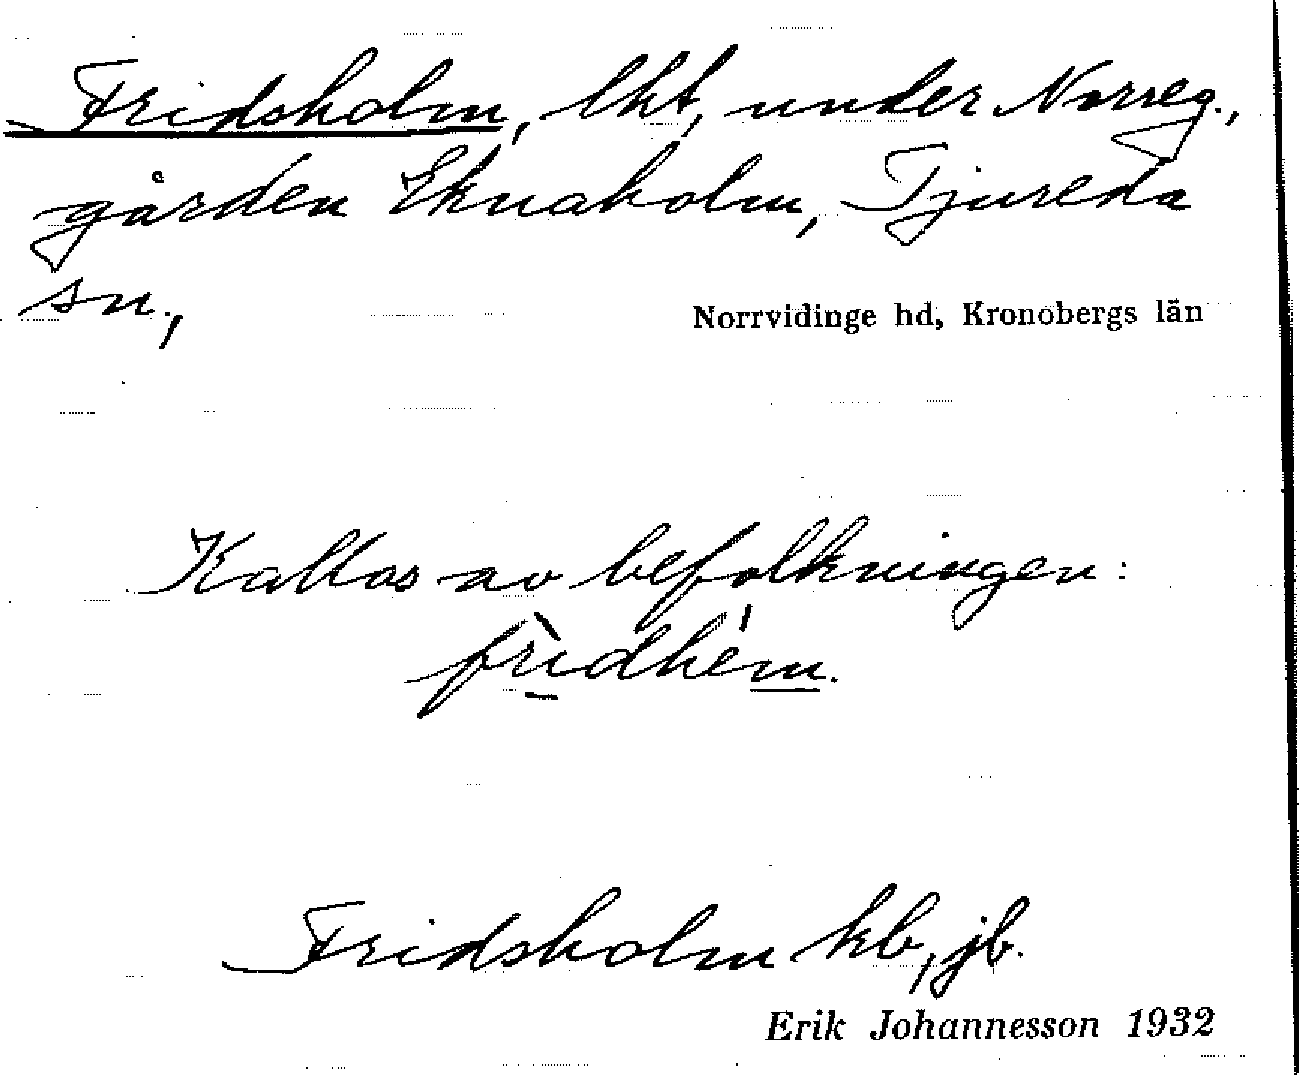 Fridsholm, lht, under Norreg.,
gården Eknaholm, Tjureda
sn.,
Norrvidinge hd, Kronobergs län
Kallas av befolkningen:
frìdhém.
Fridsholm kb, jb.
Erik Johannesson 1932